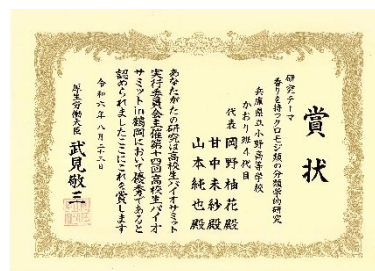 賞状
研究テーマ
香りを持つクロモジ類の分類学的研究
兵庫県立小野高等学校
かおり班4代目
代表 岡野柚花殿
甘中未紗殿
山本純也殿
あなたがたの研究は高校生バイオサミット
実行委員会主催第十四回高校生バイオ
サミットin鶴岡において優秀であると
認められましたここにこれを賞します
令和六年八月二十三日
厚生労働大臣 武見敬三